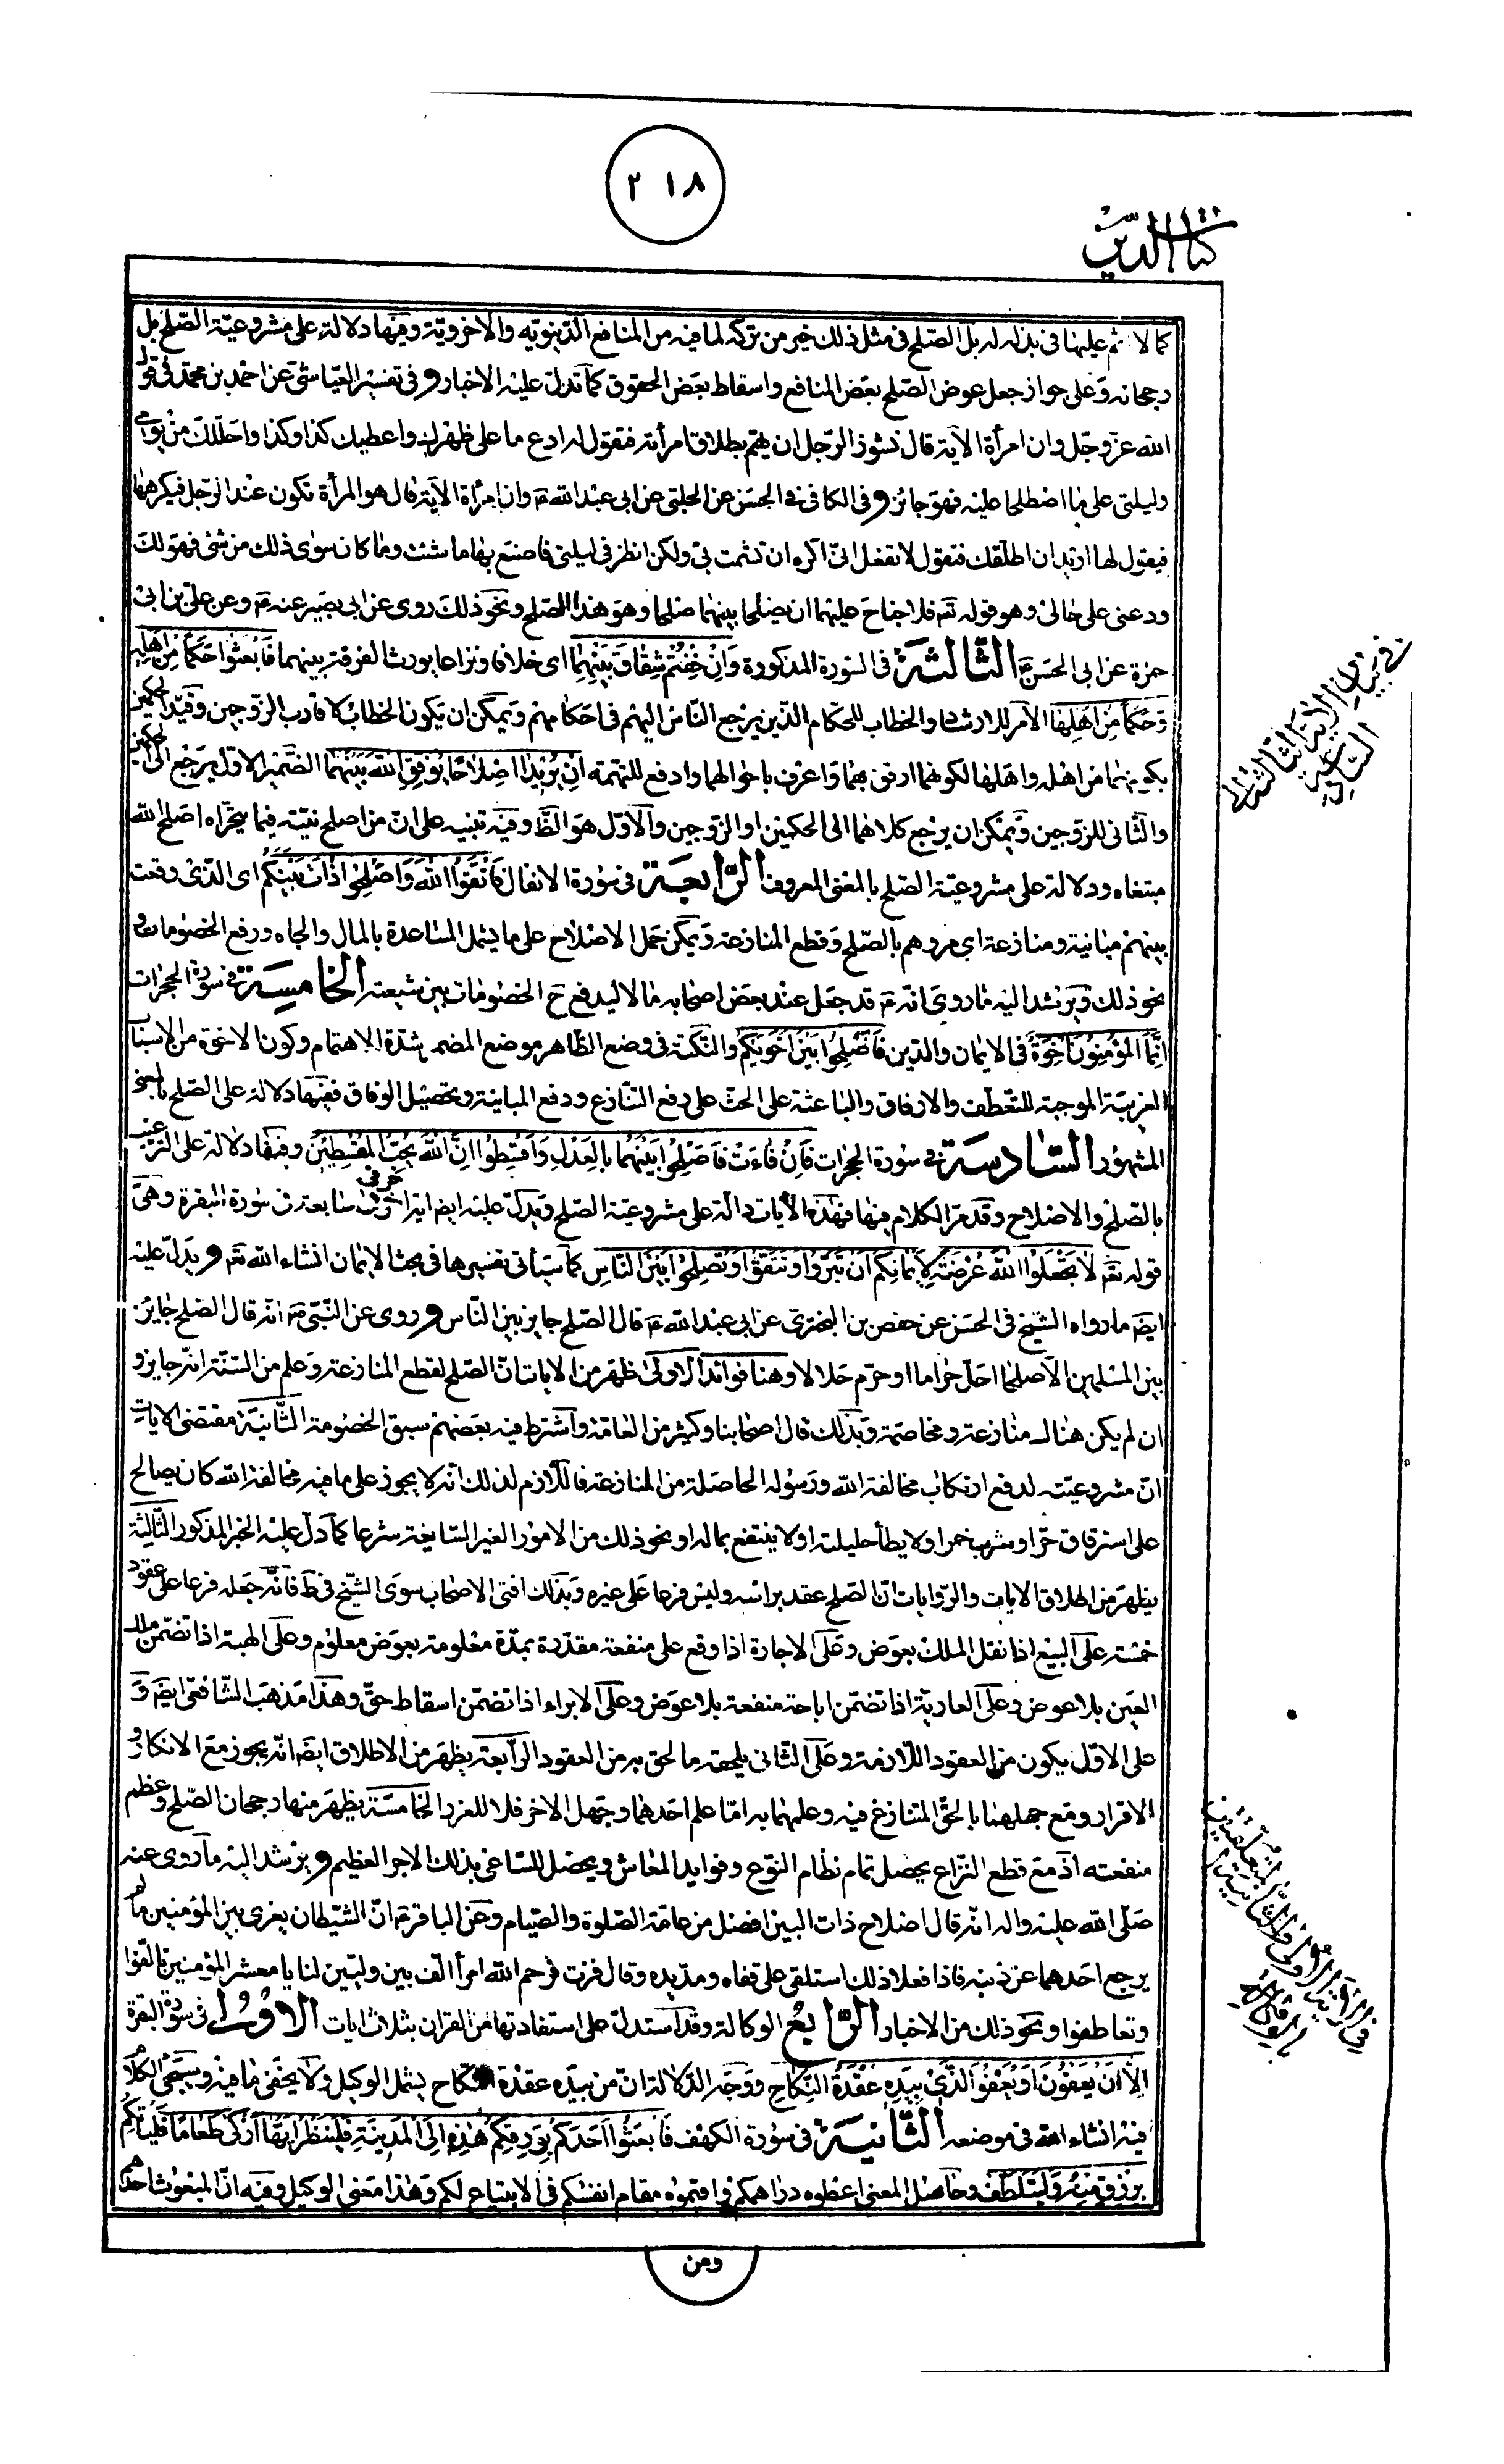 ٢١٨
كتاب الدين
كما لا اثم عليها فى بذله له بل الصّلح فى مثل ذلك خير من تركه لما فيه من المنافع الدّينويّه والاخرويّة ومنها دلالة على مشروعيّة الصّلح بل
رجحانه وعلى جواز جعل عوض الصّلح بعض المنافع واسقاط بعض الحقوق كما تدلّ عليه الاخبار وفى تفسير العيّاشى عن احمد بن محمّد فى قول
الله عزّ وجلّ وان امرأة الآية قال نشوز الرّجل ان يهمّ بطلاق امرأته فتقول له ادع ما على ظهرك واعطيك كذا وكذا واحلّلك من يومى
وليلتى على ما اصطلحا عليه فهو جائز وفى الكافى فى الحسن عن الحلبى عن ابى عبد الله ع وان امرأة الآية قال هو المرأة تكون عند الرّجل فيكرهها
فيقول لها اريد ان اطلّقك فتقول لا تفعل انّى اكره ان تشمت بى ولكن انظر فى ليلتى فاصنع بها ما شئت وما كان سوى ذلك من شئ فهو لك
ودعنى على حالى وهو قوله تعم فلا جناح عليهما ان يصلحا بينهما صلحا وهو هذا الصّلح ونحو ذلك روى عن ابى بصير عنه ع وعن علىّ بن ابى
حمزة عن ابى الحسن ع الثّالثة فى السّورة المذكورة وَاِنْ خِفْتُمْ شِقٰاقَ بَيْنِهِمٰا اى خلافا ونزاعا يورث الفرقة بينهما فَابْعَثُوا حَكَماً مِنْ اَهْلِهِ
وَحَكَماً مِنْ اَهْلِهٰا الامر للارشاد والخطاب للحكّام الّذين يرجع النّاس اليهم فى احكامهم ويمكن ان يكون الخطاب لاقارب الزّوجين وقيّد الحكمين
بكونهما من اهله واهلها لكونهما ارفق بهما واعرف باحوالهما وادفع للتهمة اِنْ يُرِيدٰا اِصْلٰاحاً يُوَفِّقِ اللّٰهُ بَيْنَهُمٰا الضّمير الاوّل يرجع الى الحكمين
والثّانى للزّوجين ويمكن ان يرجع كلاهما الى الحكمين او الزّوجين والاوّل هو الظّ وفيه تنبيه على انّ من اصلح نيّته فيما يتحرّاه اصلح الله
مبتغاه ودلالة على مشروعيّة الصّلح بالمعنى المعروف الرّابعة فى سورة الانفال فَاتَّقُوا اللّٰهَ وَاَصْلِحُوا ذٰاتَ بَيْنِكُمْ اى الّذى وقعت
بينهم مباينة ومنازعة اى مروهم بالصّلح وقطع المنازعة ويمكن حمل الاصلاح على ما يشمل المساعدة بالمال والجاه ورفع الخصومات و
نحو ذلك ويرشد اليه ما روى انّه ع قد جعل عند بعض اصحابه مالا ليدفع ح الخصومات بين شيعته الخامسة فى سورة الحجرات
اِنَّمَا الْمُؤْمِنُونَ اِخْوَةٌ فى الايمان والدّين فَاَصْلِحُوا بَيْنَ اَخَوَيْكُمْ والنّكتة فى وضع الظّاهر موضع المضمر شدّة الاهتمام وكون الاخوّة من الاسباب
القريبة الموجبة للتّعطّف والارفاق والباعثة على الحثّ على رفع التّنازع ودفع المباينة وتحصيل الوفاق ففيها دلالة على الصّلح بالمعنى
المشهور السّادسة فى سورة الحجرات فَاِنْ فٰاءَتْ فَاَصْلِحُوا بَيْنَهُمٰا بِالْعَدْلِ وَاَقْسِطُوا اِنَّ اللّٰهَ يُحِبُّ الْمُقْسِطِينَ وفيها دلالة على التّرغيب
بالصّلح والاصلاح وقد مرّ الكلام فيها فهذه الآيات دالّة على مشروعيّة الصّلح ويدلّ عليه ايضا اية اخرى سابعة فى سورة البقرة وهى
قوله تعم لٰا تَجْعَلُوا اللّٰهَ عُرْضَةً لِاَيْمٰانِكُمْ اَنْ تَبَرُّوا وَتَتَّقُوا وَتُصْلِحُوا بَيْنَ النّٰاسِ كما سيأتى تفسيرها فى بحث الايمان انشاء الله تعم ويدلّ عليه
ايضا ما رواه الشّيخ فى الحسن عن حفص بن البخترى عن ابى عبد الله ع قال الصّلح جايز بين النّاس وروى عن النّبىّ ص انّه قال الصّلح جايز
بين المسلمين الّا صلحا احلّ حراما او حرّم حلالا وهنا فوائد الاولى ظهر من الآيات انّ الصّلح لقطع المنازعة وعلم من السّنّة انّه جايز و
ان لم يكن هناك منازعة ومخاصمة وبذلك قال اصحابنا وكثير من العامّة واشترط فيه بعضهم سبق الخصومة الثّانية مقتضى الآيات
انّ مشروعيّته لدفع ارتكاب مخالفة الله ورسوله الحاصلة من المنازعة فاللّازم لذلك انّه لا يجوز على ما فيه مخالفة الله كان يصالح
على استرقاق حرّ او شرب خمر او لا يطأ حليلته او لا ينتفع بماله او نحو ذلك من الامور الغير السّايغة شرعا كما دلّ عليه الخبر المذكور الثّالثة
يظهر من اطلاق الآيات والرّوايات انّ الصّلح عقد برأسه وليس فرعا على غيره وبذلك افتى الاصحاب سوى الشّيخ فى ط فانّه جعله فرعا على عقود
خمسة على البيع اذا نقل الملك بعوض وعلى الاجارة اذا وقع على منفعة مقدّرة بمدّة معلومة بعوض معلوم وعلى الهبة اذا تضمّن ملك
العين بلا عوض وعلى العاريّة اذا تضمّن اباحة منفعة بلا عوض وعلى الابراء اذا تضمّن اسقاط حقّ وهذا مذهب الشّافعى ايضا و
على الاوّل يكون من العقود اللّازمة وعلى الثّانى يلحقه ما لحق به من العقود الرّابعة يظهر من الاطلاق ايضا انّه يجوز مع الانكار و
الاقرار ومع جهلهما بالحقّ المتنازع فيه وعلمهما به امّا علم احدهما وجهل الاخر فلا للغرر الخامسة يظهر منها رجحان الصّلح وعظم
منفعته اذ مع قطع النّزاع يحصل تمام نظام النّوع وفوايد المعاش ويحصل للسّاعى بذلك الاجر العظيم ويرشد اليه ما روى عنه
صلّى الله عليه واله انّه قال اصلاح ذات البين افضل من عامّة الصّلوة والصّيام وعن الباقر ع انّ الشّيطان يغرى بين المؤمنين ما لم
يرجع احدهما عن ذنبه فاذا فعلا ذلك استلقى على قفاه ومدّ يده وقال فزت فرحم الله امرأ الّف بين وليّين لنا يا معشر المؤمنين تالّفوا
وتعاطفوا ونحو ذلك من الاخبار الرّابع الوكالة وقد استدلّ على استفادتها من القران بثلاث ايات الاولى فى سورة البقرة
اِلّٰا اَنْ يَعْفُونَ اَوْ يَعْفُوَ الَّذِى بِيَدِهِ عُقْدَةُ النِّكٰاحِ ووجه الدّلالة انّ من بيده عقدة النّكاح يشمل الوكيل ولا يخفى ما فيه وسيجئ الكلام
فيه انشاء الله فى موضعه الثّانية فى سورة الكهف فَابْعَثُوا اَحَدَكُمْ بِوَرِقِكُمْ هٰذِهِ اِلَى الْمَدِينَةِ فَلْيَنْظُرْ اَيُّهٰا اَزْكٰى طَعٰاماً فَلْيَأْتِكُمْ
بِرِزْقٍ مِنْهُ وَلْيَتَلَطَّفْ وحاصل المعنى اعطوه دراهمكم واقيموه مقام انفسكم فى الابتياع لكم وهذا معنى الوكيل وفيه انّ المبعوث احدهم
ومن
فى بيان الاية الثّالثة الى
فى الاية الاولى والثّانية المتعلّقين
بالوكالة